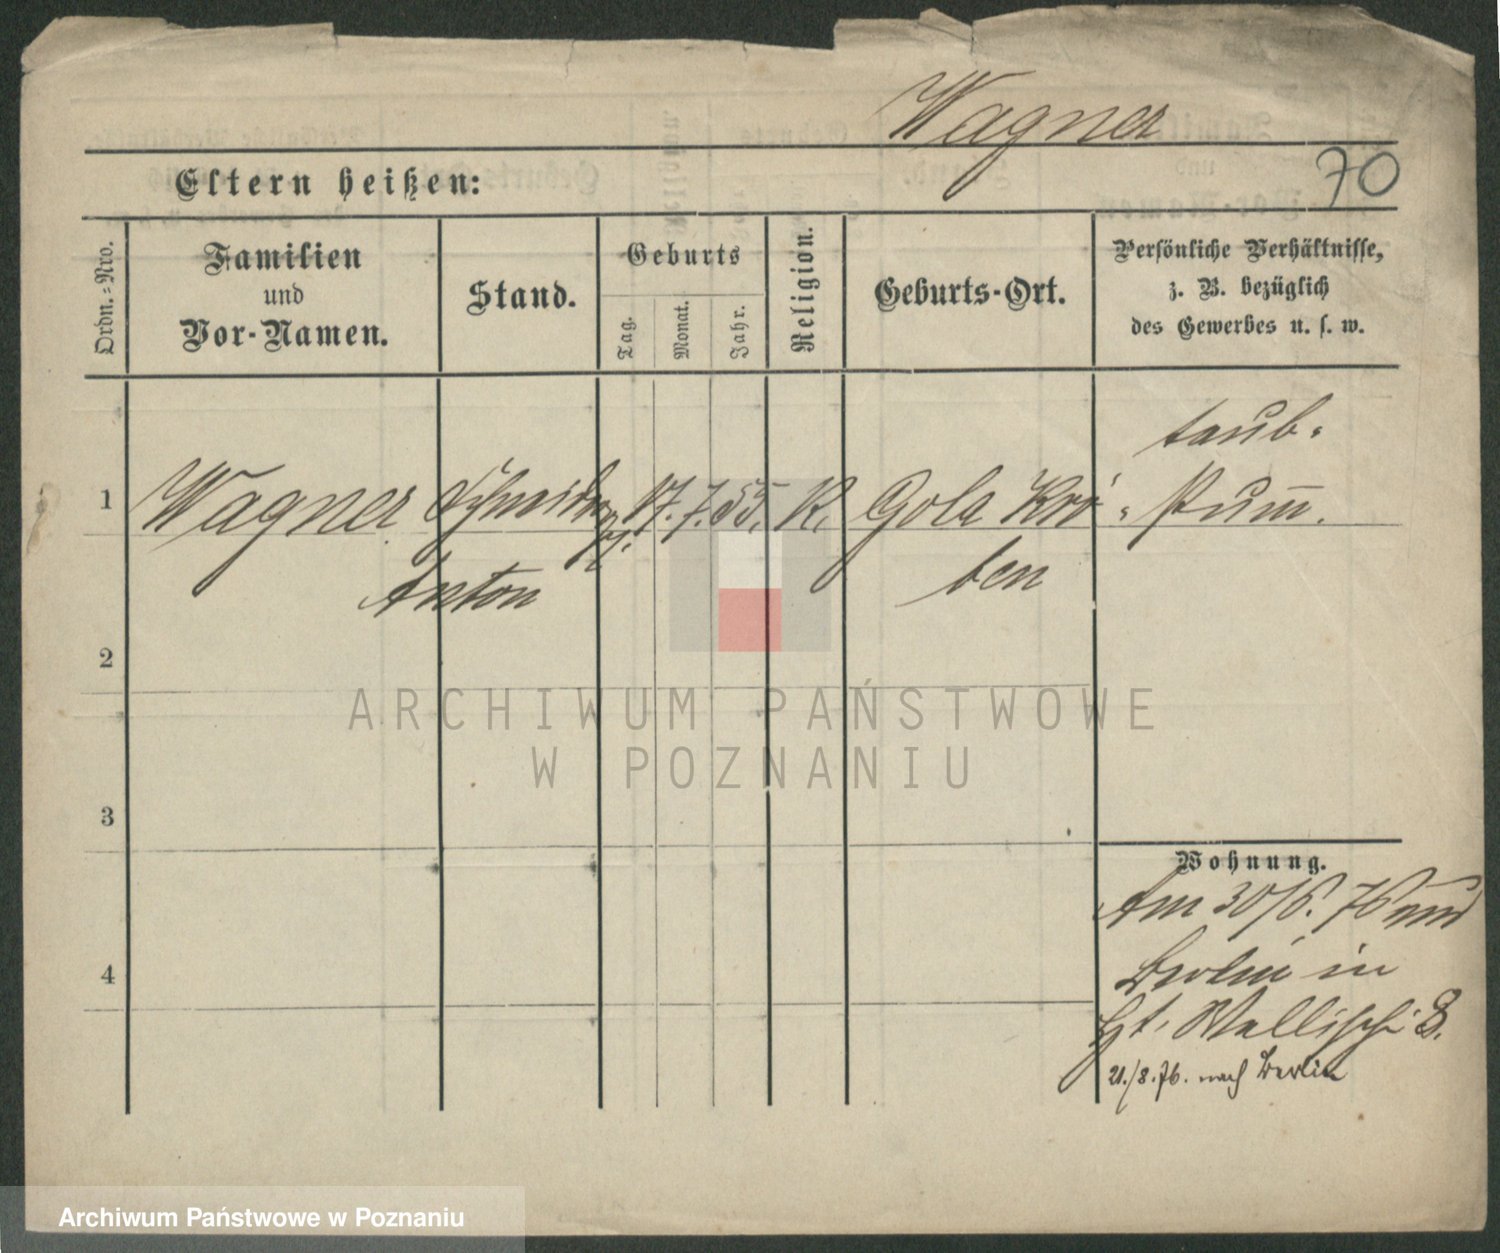 Wagner
Eltern heißen:
70
Ordn.-Nro.
Familien
und
Vor-Namen.
Stand.
Geburts
Tag.
Monat.
Jahr.
Religion.
Geburts-Ort.
Persönliche Verhältnisse,
z. B. bezüglich
des Gewerbes u. s. w.
taub-
1 Wagner Schneider 17. 7. 55. K. Gola Krö- stumm.
Anton
ben
2
3
4
Wohnung.
Am 30/6. 76 aus
Berlin in
Wallischei 8.
21./8.76. nach Berlin
ARCHIWUM PAŃSTWOWE
W POZNANIU
Archiwum Państwowe w Poznaniu